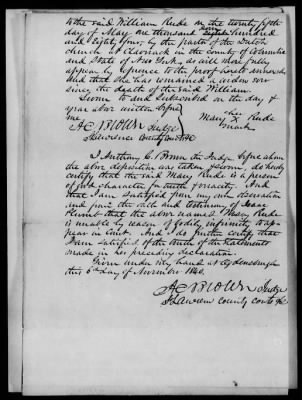 to the said William Rude on the twenty fifth
day of May one thousand seven hundred
and Eighty four by the pastor of the Dutch
church at Claverack in the county of Columbia
and State of New York, as will more fully
appear by reference to the proof hereto annexed
and that she has remained a widow ever
since the death of the said William.
Sworn to and Subscribed on the day &
year above written before
me,
her
Mary X Rude
mark
A C Brown Judge
St Lawrence County Court &c
I Anthony C. Brown the Judge before whom
the above deposition was taken & sworn, do hereby
certify that the said Mary Rude is a person
of good character for truth & veracity. And
that I am satisfied from my own observation
and from the oath and testimony of Isaac
Plumb that the above named Mary Rude
is unable by reason of bodily infirmity to ap-
pear in court. And I do further certify that
I am satisfied of the truth of the statements
made in her preceding declaration.
Given under my hand at Ogdensburgh
this 6th day of November 1840.
A C Brown Judge
St Lawrence county courts &c